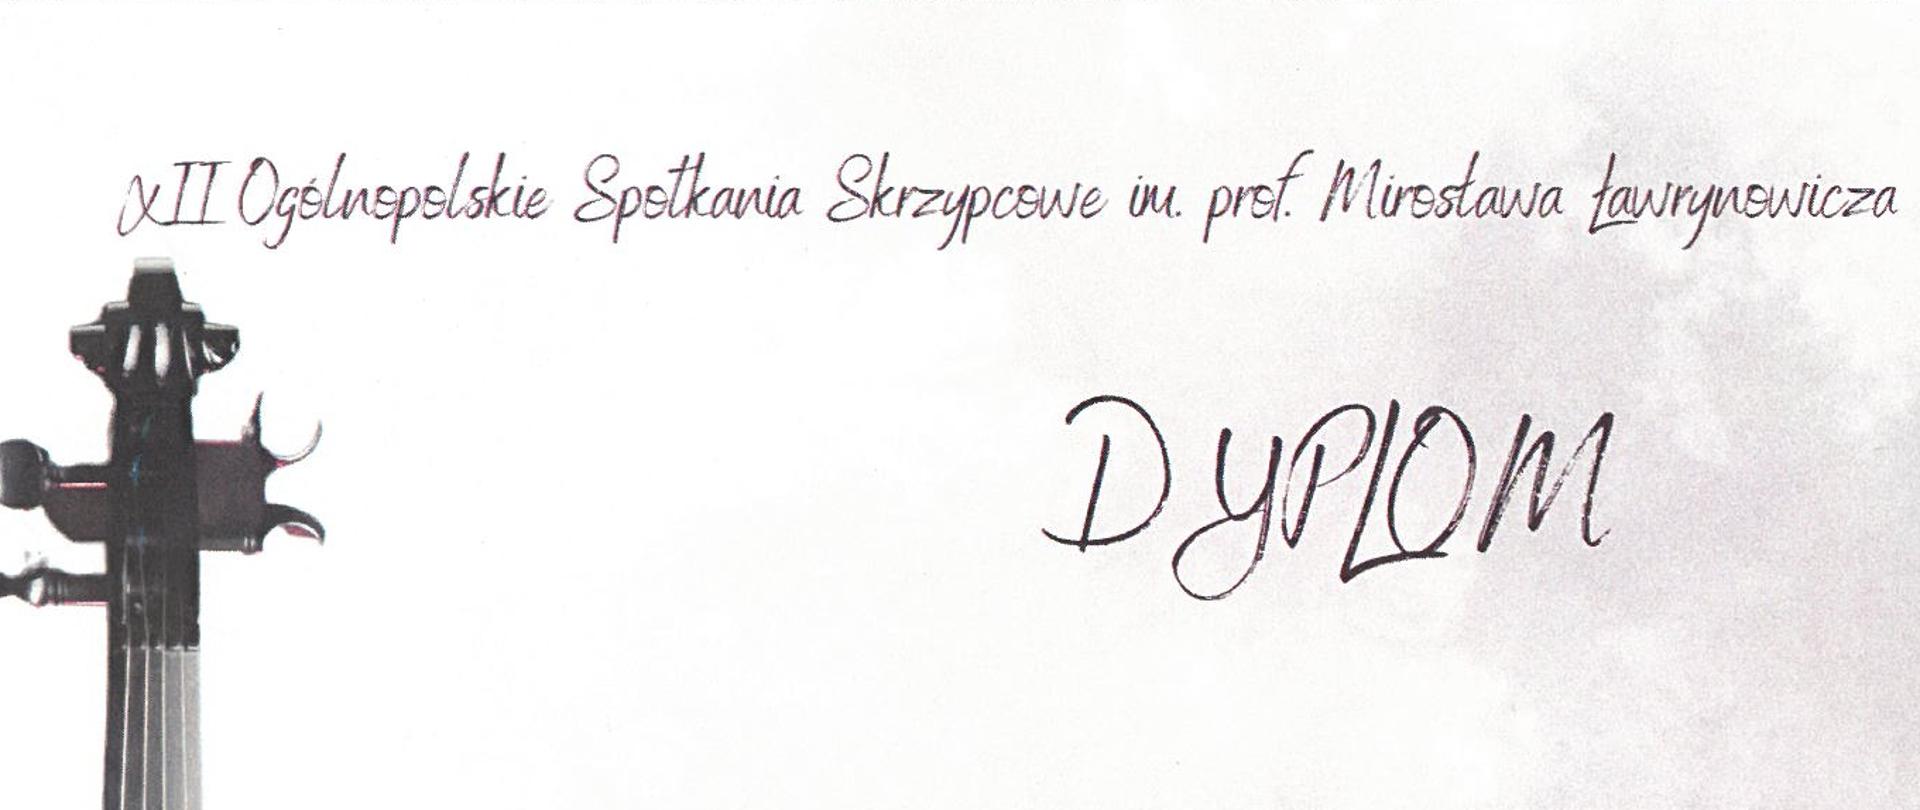 XII Ogólnopolskie Spotkania Skrzypcowe im. prof. Mirosława Ławrynowicza
DYPLOM